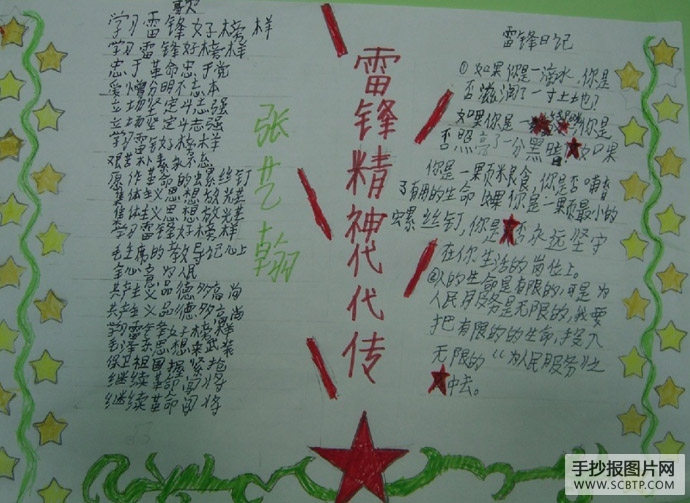 歌
学习雷锋好榜样
学习雷锋好榜样
忠于革命忠于党
爱憎分明不忘本
立场坚定斗志强
立场坚定斗志强
学习雷锋好榜样
艰苦朴素
愿作革命的螺丝钉
集体主义思想放光辉
集体主义思想放光辉
学习雷锋好榜样
毛主席的教导记心上
全心意为人民
共产主义品德多高尚
共产主义品德多高尚
学习雷锋好榜样
毛泽东思想来武装
保卫祖国握紧枪
继续革命闯将
继续革命闯将
张艺翰
雷锋精神代代传
雷锋日记
①如果你是一滴水,你是
否滋润了一寸土地?
如果你是一 你是
否照亮了一分黑暗 如果
你是一颗米粮食,你是否哺育
了有用的生命 如果你是一颗最小的
螺丝钉,你是否永远坚守
在你生活的岗位上。
②人的生命是有限的,可是为
人民服务是无限的,我要
把有限的的生命,投入
无限的《为人民服务》之
中去。
手抄报图片网
WWW.SCBTP.COM